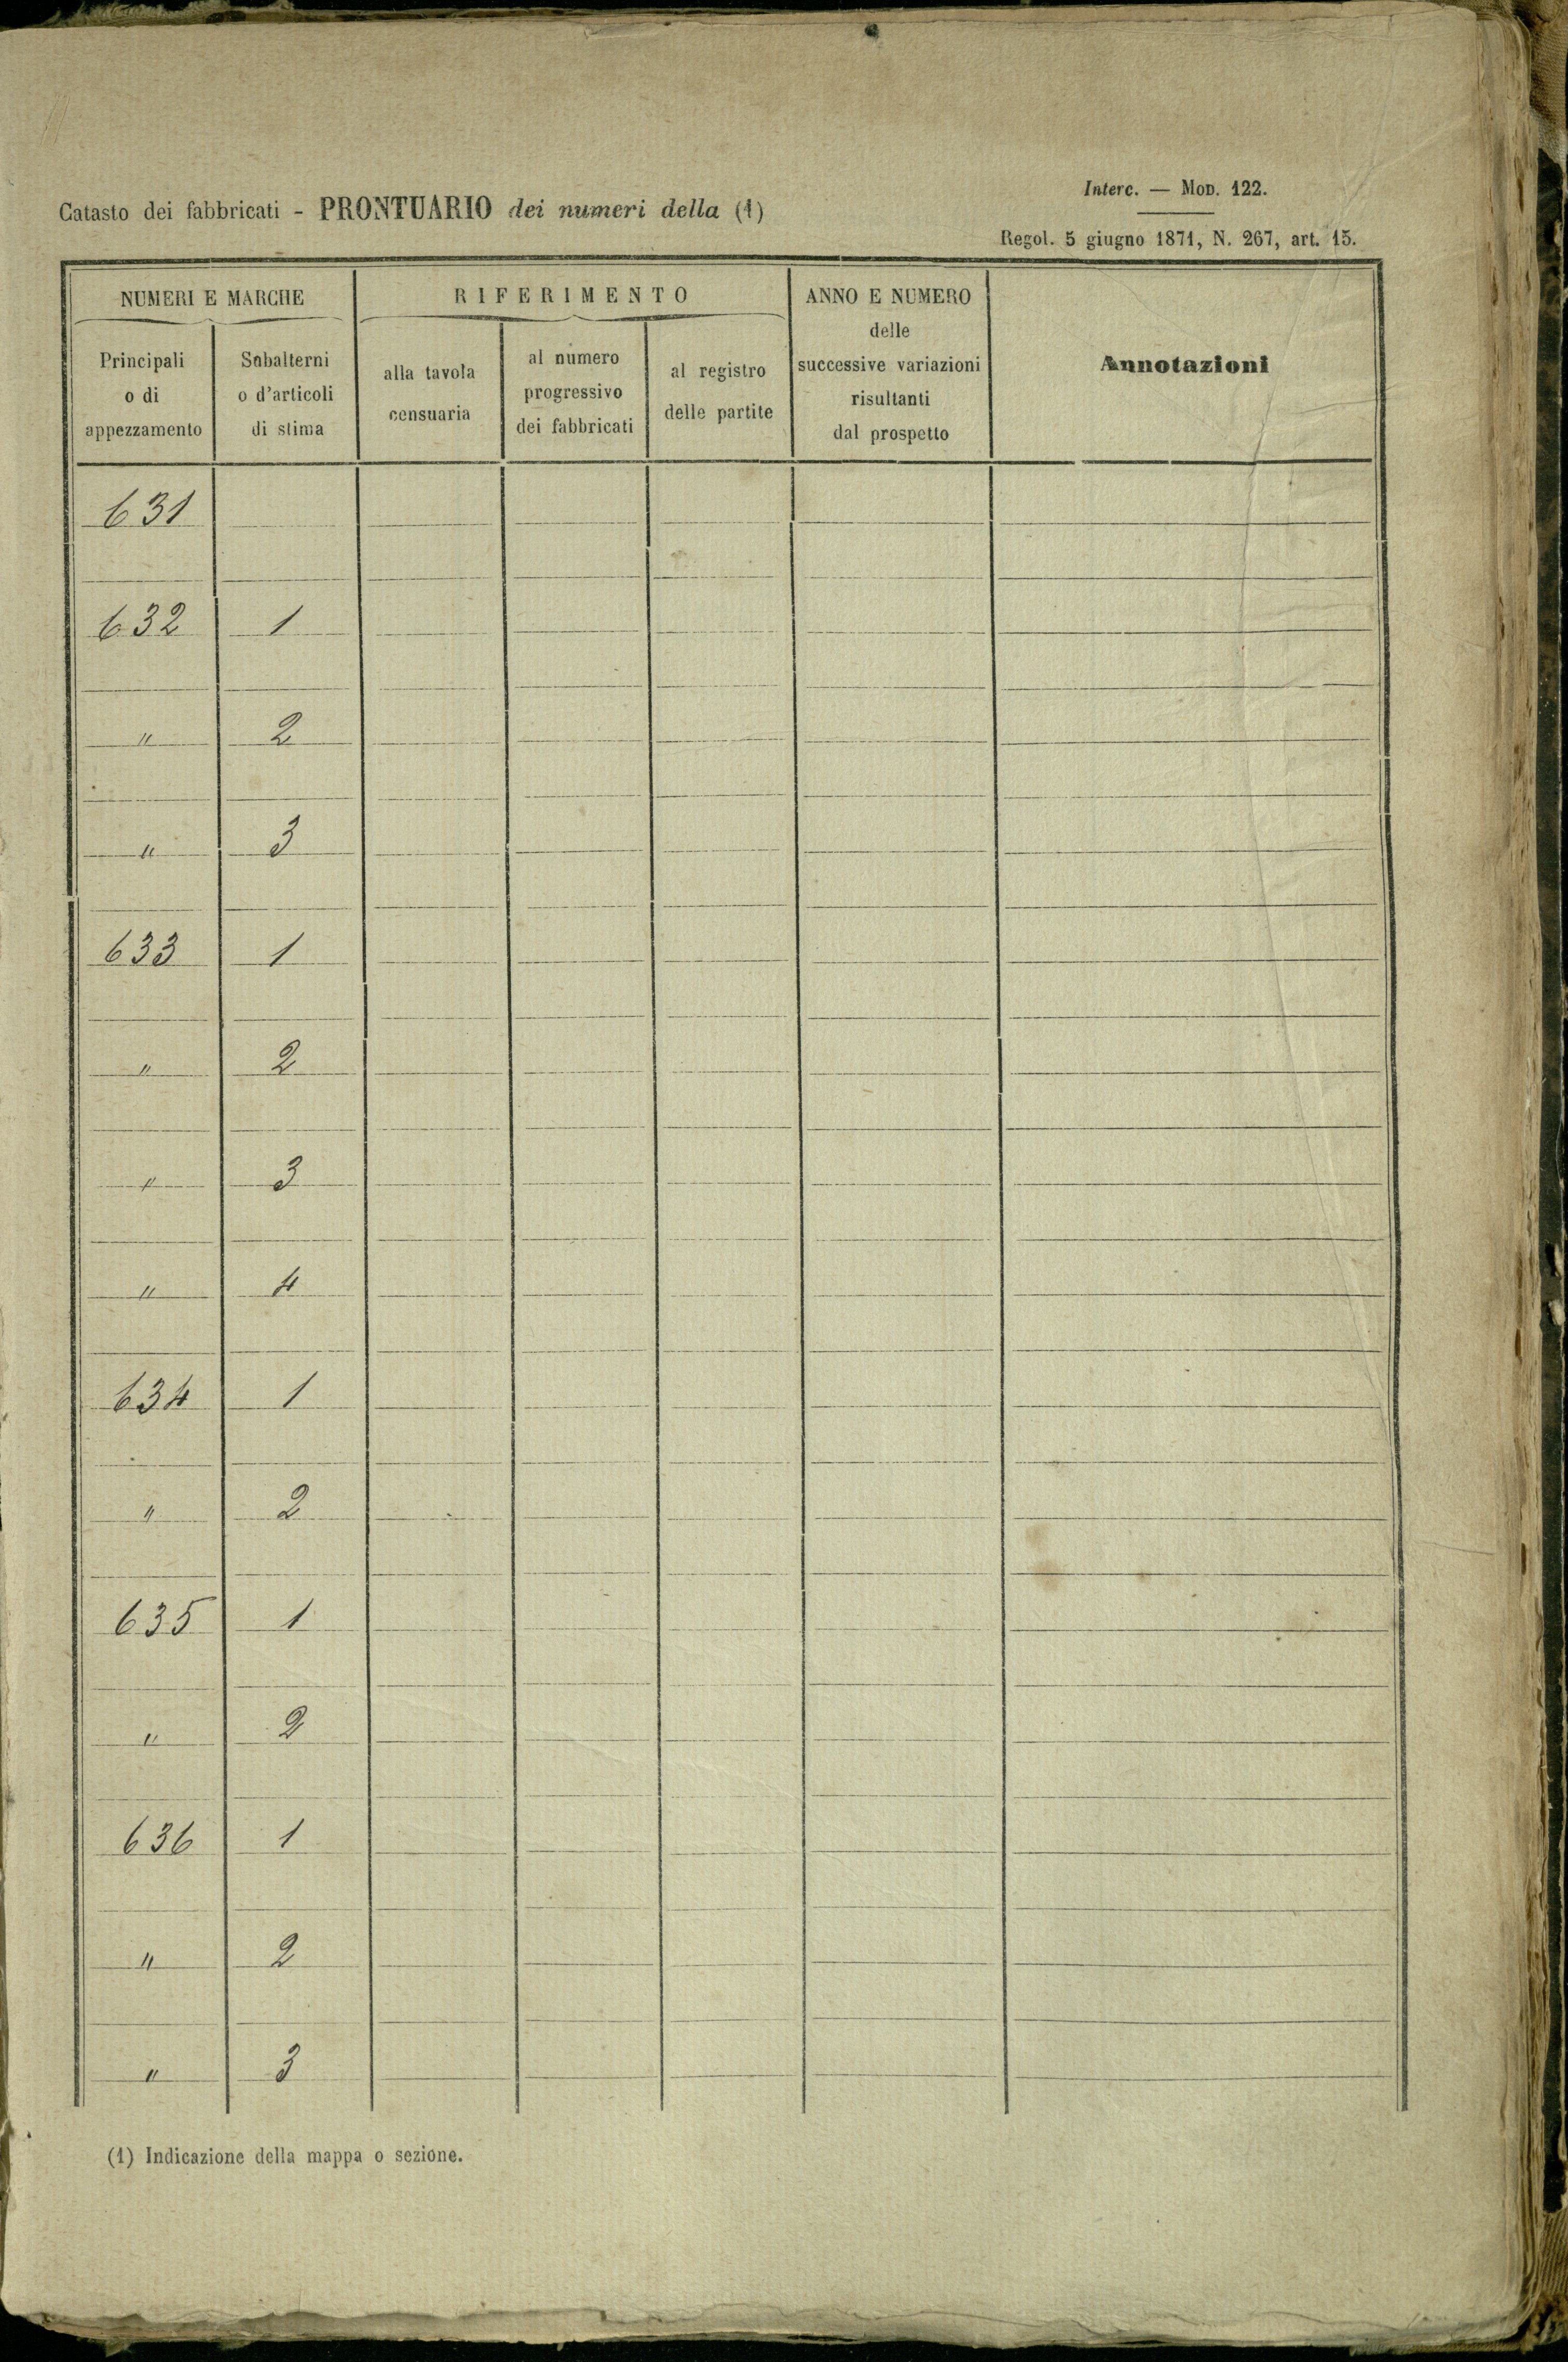 Interc. — Mod. 122.
Catasto dei fabbricati - PRONTUARIO dei numeri della (1)
Regol. 5 giugno 1871, N. 267, art. 15.
NUMERI E MARCHE
RIFERIMENTO
ANNO E NUMERO
delle
successive variazioni
risultanti
dal prospetto
Annotazioni
Principali
o di
appezzamento
Subalterni
o d'articoli
di stima
alla tavola
censuaria
al numero
progressivo
dei fabbricati
al registro
delle partite
631
632 1
" 2
" 3
633 1
" 2
" 3
" 4
634 1
" 2
635 1
" 2
636 1
" 2
" 3
(1) Indicazione della mappa o sezione.